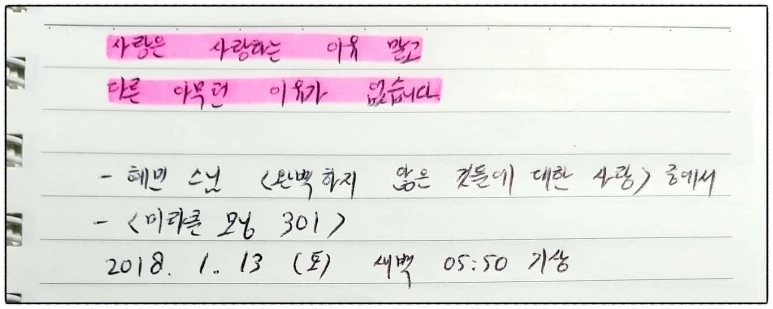 사랑은 사랑하는 이유 말고
다른 아무런 이유가 없습니다.
- 혜민 스님 <완벽하지 않은 것들에 대한 사랑> 중에서
- <미라클 모닝 301>
2018. 1. 13 (토) 새벽 05:50 기상